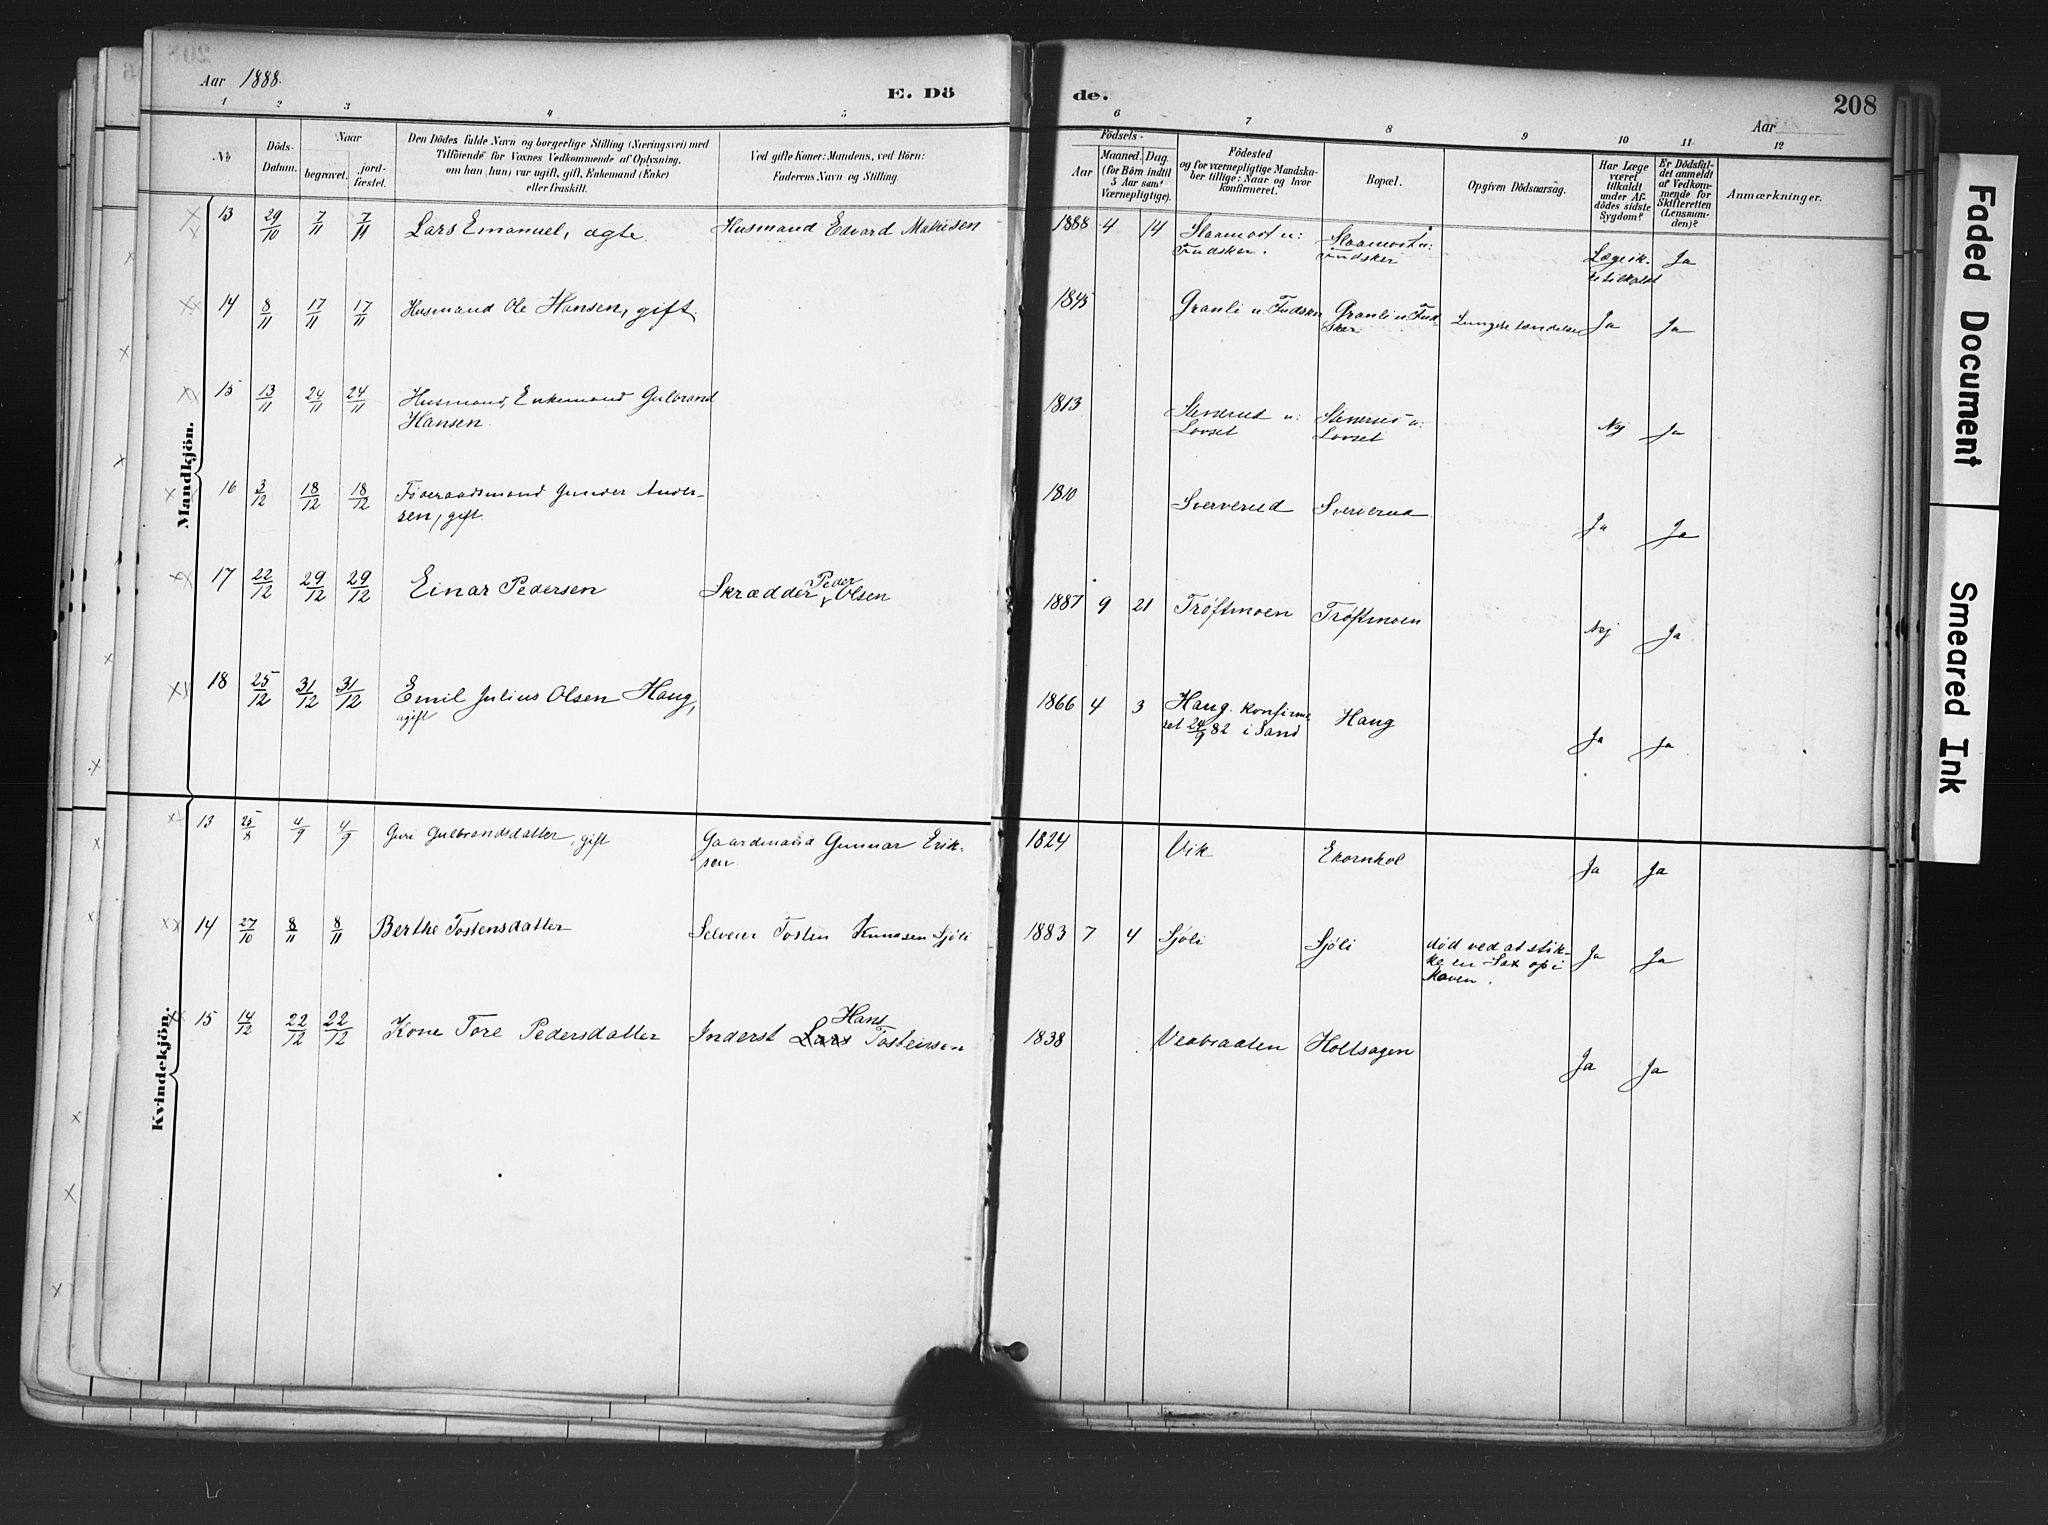 Aar 1888.
E. Dö
de.
208
Aar
1 2 3 4 5 6 7 8 9 10 11 12
No
Döds-
Datum.
Naar
begravet.
jord-
fæstet.
Den Dödes fulde Navn og borgerlige Stilling (Næringsvei) med
Tilföiende for Voxnes Vedkommende af Oplysning,
om han (hun) var ugift, gift, Enkemand (Enke)
eller fraskilt.
Ved gifte Koner: Mandens, ved Börn:
Faderens Navn og Stilling.
Födsels-
Aar
Maaned.
Dag.
(for Börn indtil
5 Aar samt
Værnepligtige).
Födested
og for værnepligtige Mandska-
ber tillige: Naar og hvor
konfirmeret.
Bopæl.
Opgiven Dödsaarsag.
Har Læge
været
tilkaldt
under Af-
dödes sidste
Sygdom?
Er Dödsfal-
det anmeldt
af Vedkom-
mende for
Skifteretten
(Lensman-
den)?
Anmærkninger.
Mandkjön.
13 29/10 7/11 7/11 Lars Emanuel, ægte Husmand Edvard Mathisen 1888 4 14
Fudsker. Fudsker Læge ik-
ke tilkaldt Ja
14 8/11 17/11 17/11 Husmand Ole Hansen, gift. 1845 Granli u. Fudsker Granli u. Fud-
sker Lungebetændelse Ja Ja
15 13/11 24/11 24/11 Husmand, Enkemand Gulbrand
Hansen. 1813 Stenerud u:
Lovset Stenerud u:
Lovset Nej Ja
16 3/12 18/12 18/12 Føderaadsmand Gunder Ander-
sen, gift. 1810 Sververud Sververud Ja Ja
17 22/12 29/12 29/12 Einar Pedersen Skrædder Peder Olsen 1887 9 21 Trøftmoen Trøftmoen Nej Ja
18 25/12 31/12 31/12 Emil Julius Olsen Haug,
ugift 1866 4 3 Haug. Konfirme-
ret 24/9 82 i Sand Haug Ja Ja
Kvindekjön.
13 25/8 4/9 4/9 Guri Gulbrandsdatter, gift Gaardmand Gunnar Erik-
sen 1824 Vik Ekornhol Ja Ja
14 27/10 8/11 8/11 Berthe Tostensdatter Selveier Tosten Knudsen Sjöli 1883 7 4 Sjöli Sjöli død ved at stik-
ke en Sax op i
Maven. Ja Ja
15 14/12 22/12 22/12 Kone Tore Pedersdatter Inderst Lars Hans Tostensen 1838 Vedbraaten Holtsagen Ja Ja
Faded Document
Smeared Ink